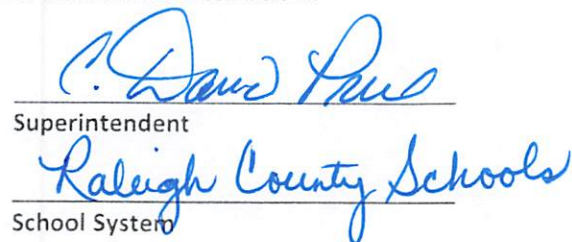 C. David Price
Superintendent
Raleigh County Schools
School System